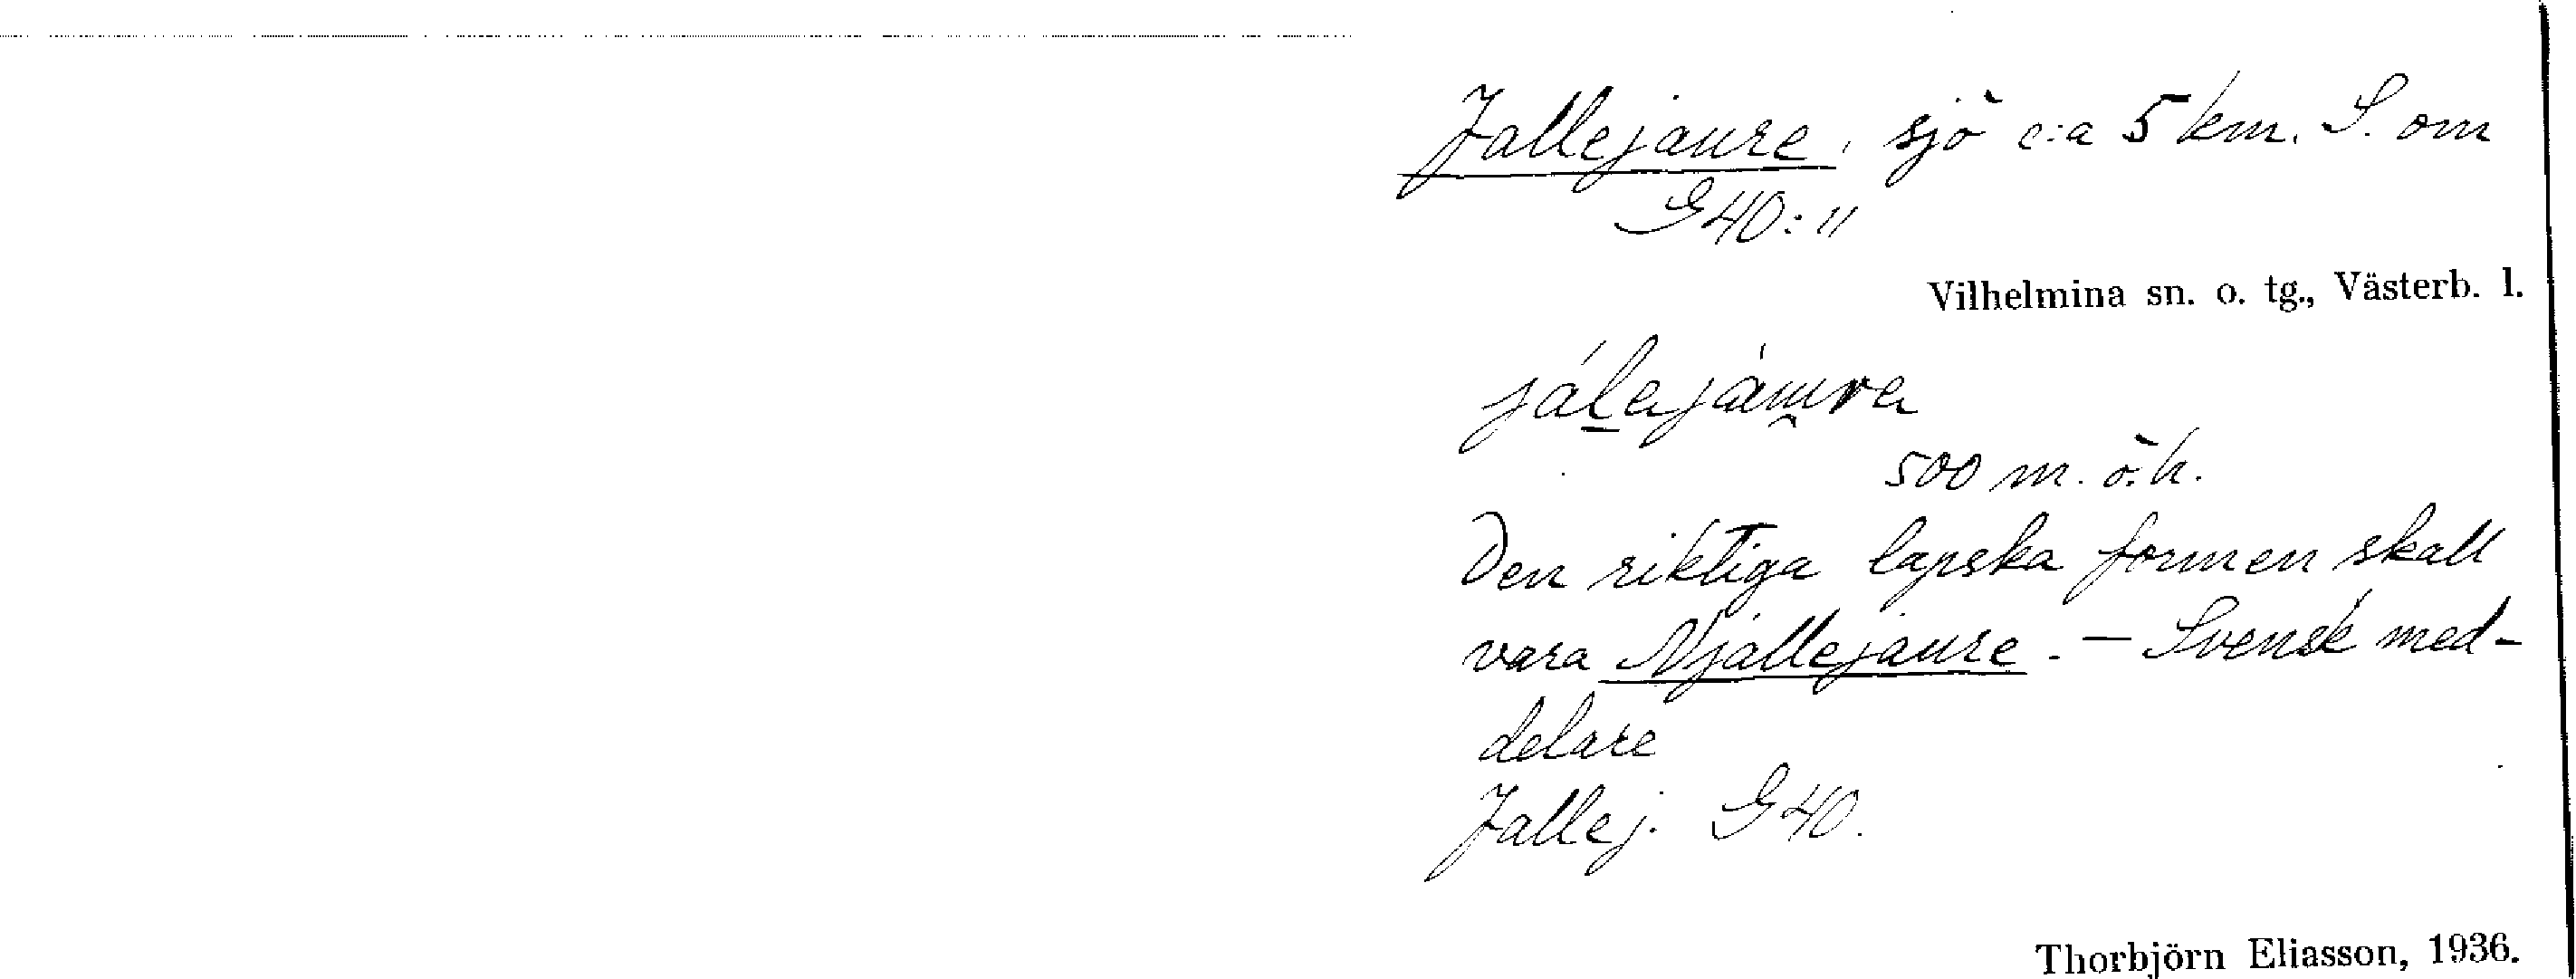 Jallejaure, sjö c:a 5 km. S. om
G40:11
Vilhelmina sn. o. tg., Västerb. l.
500 m. ö. h.
Den riktiga lapska formen skall
vara Njallejaure. — Svensk med-
delare
Jallej. G40.
Thorbjörn Eliasson, 1936.